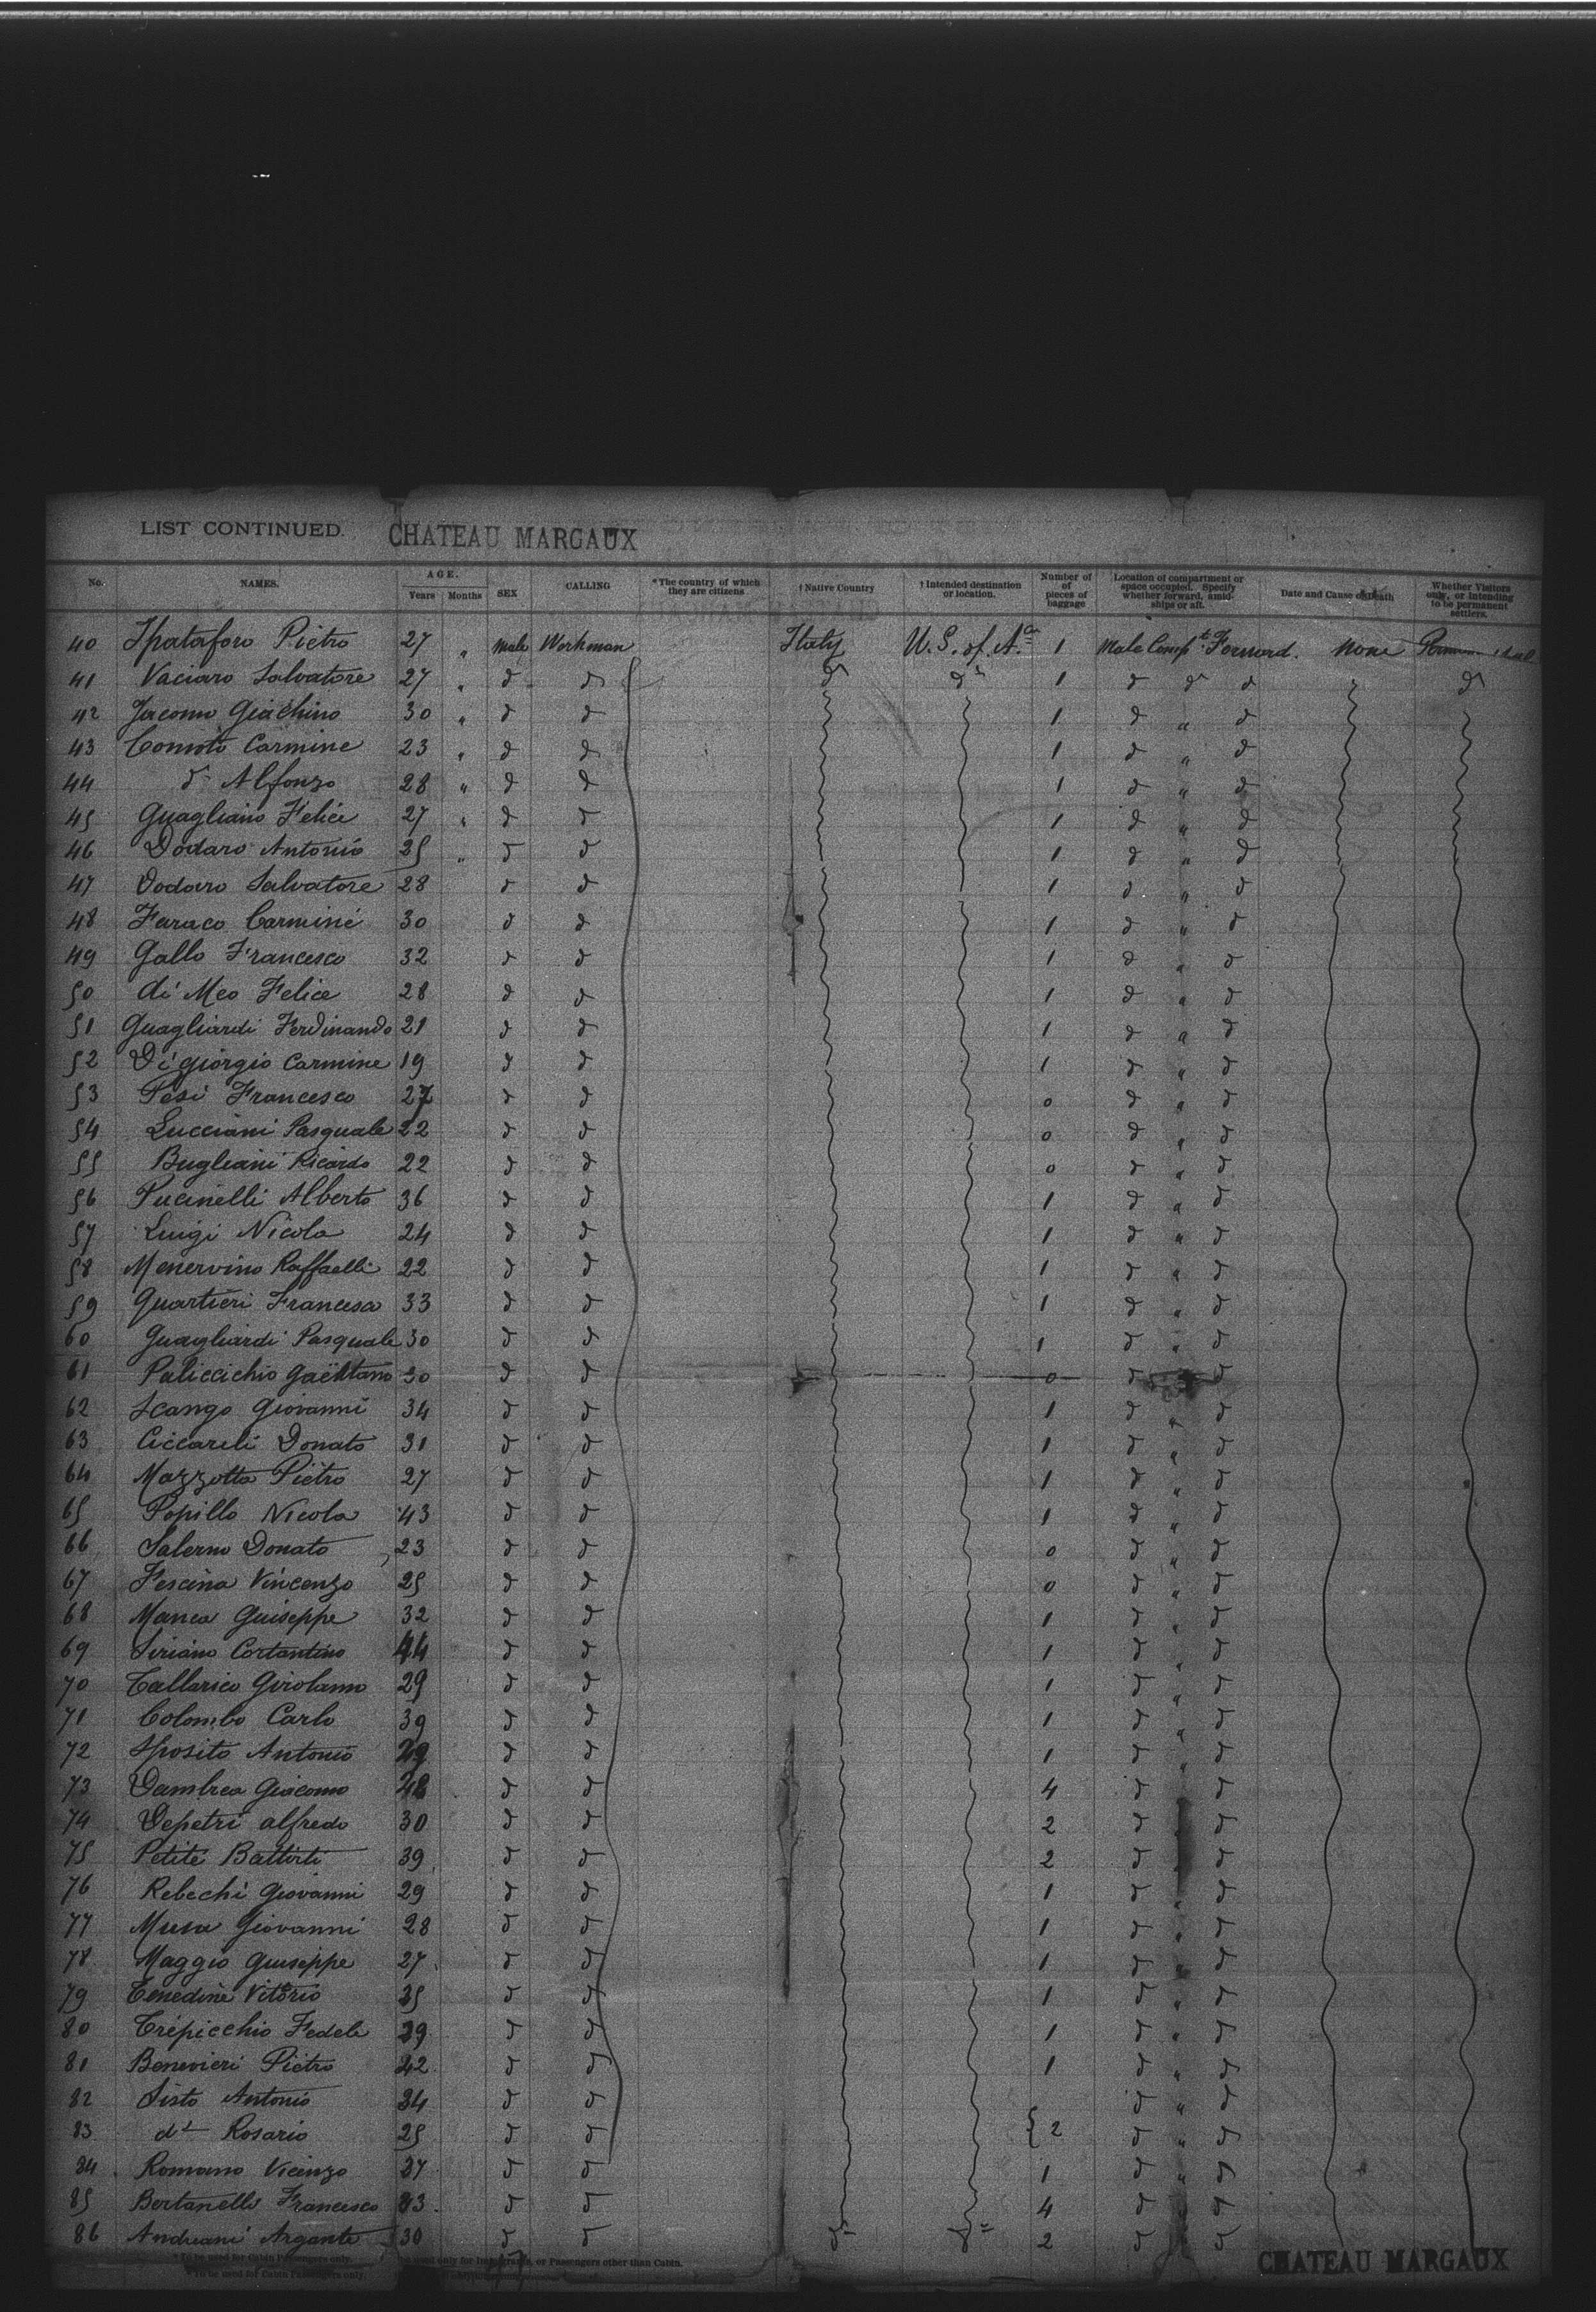 LIST CONTINUED. CHATEAU MARGAUX
No. NAMES. AGE. Years Months SEX CALLING *The country of which they are citizens †Native Country †Intended destination or location. Number of of pieces of baggage Location of compartment or space occupied. Specify whether forward, amidships or aft. Date and Cause of Death Whether Visitors only, or intending to be permanent settlers.
40 Spataforo Pietro 27 " Male Workman Italy U.S. of Aca 1 Male Compt Forward. None
41 Vaciaro Salvatore 27 " d d d d 1 d d d d
42 Jacomo Giachino 30 " d d 1 d " d
43 Comito Carmine 23 " d d 1 d " d
44 d Alfonzo 28 " d d 1 d " d
45 Guagliano Felice 27 " d d 1 d " d
46 Dodaro Antonio 25 " d d 1 d " d
47 Dodaro Salvatore 28 d d 1 d " d
48 Faraco Carmine 30 d d 1 d " d
49 Gallo Francesco 32 d d 1 d " d
50 di Meo Felice 28 d d 1 d " d
51 Guagliardi Ferdinando 21 d d 1 d " d
52 Di giorgio Carmine 19 d d 1 d " d
53 Pesi Francesco 27 d d 0 d " d
54 Lucciani Pasquale 22 d d 0 d " d
55 Bugliani Ricardo 22 d d 0 d " d
56 Pucinelli Alberto 36 d d 1 d " d
57 Luigi Nicola 24 d d 1 d " d
58 Menervino Raffaelli 22 d d 1 d " d
59 Quartieri Francesco 33 d d 1 d " d
60 Guagliardi Pasquale 30 d d 1 d " d
61 Paliccichio Gaëttano 30 d d 0 d d
62 Scango Giovanni 34 d d 1 d " d
63 Ciccarili Donato 31 d d 1 d " d
64 Mazzotta Pietro 27 d d 1 d " d
65 Popillo Nicola 43 d d 1 d " d
66 Salerno Donato 23 d d 0 d " d
67 Fescina Vincenzo 25 d d 0 d " d
68 Manca Guiseppe 32 d d 1 d " d
69 Siriano Cortantino 44 d d 1 d " d
70 Tallarico Girolamo 29 d d 1 d " d
71 Colombo Carlo 39 d d 1 d " d
72 Sposito Antonio 29 d d 1 d " d
73 Dambrea Giacomo 48 d d 4 d d
74 Depetri alfredo 30 d d 2 d d
75 Petite Battisti 39 d d 2 d d
76 Rebechi Giovanni 29 d d 1 d " d
77 Musa Giovanni 28 d d 1 d " d
78 Maggio Guiseppe 27 d d 1 d " d
79 Tenedine Vitorio 35 d d 1 d " d
80 Trépicchio Fedele 39 d d 1 d " d
81 Benevieri Pietro 42 d d 1 d " d
82 Sisto Antonio 34 d d d " d
83 do Rosario 25 d d { 2 d " d
84 Romano Vicenzo 37 d d 1 d " d
85 Bertanello Francesco 33 d d 4 d " d
86 Andreani Argante 30 d d d d 2 d " d
*To be used for Cabin Passengers only. used only for Immigrants, or Passengers other than Cabin.
*To be used for Cabin Passengers only.
CHATEAU MARGAUX